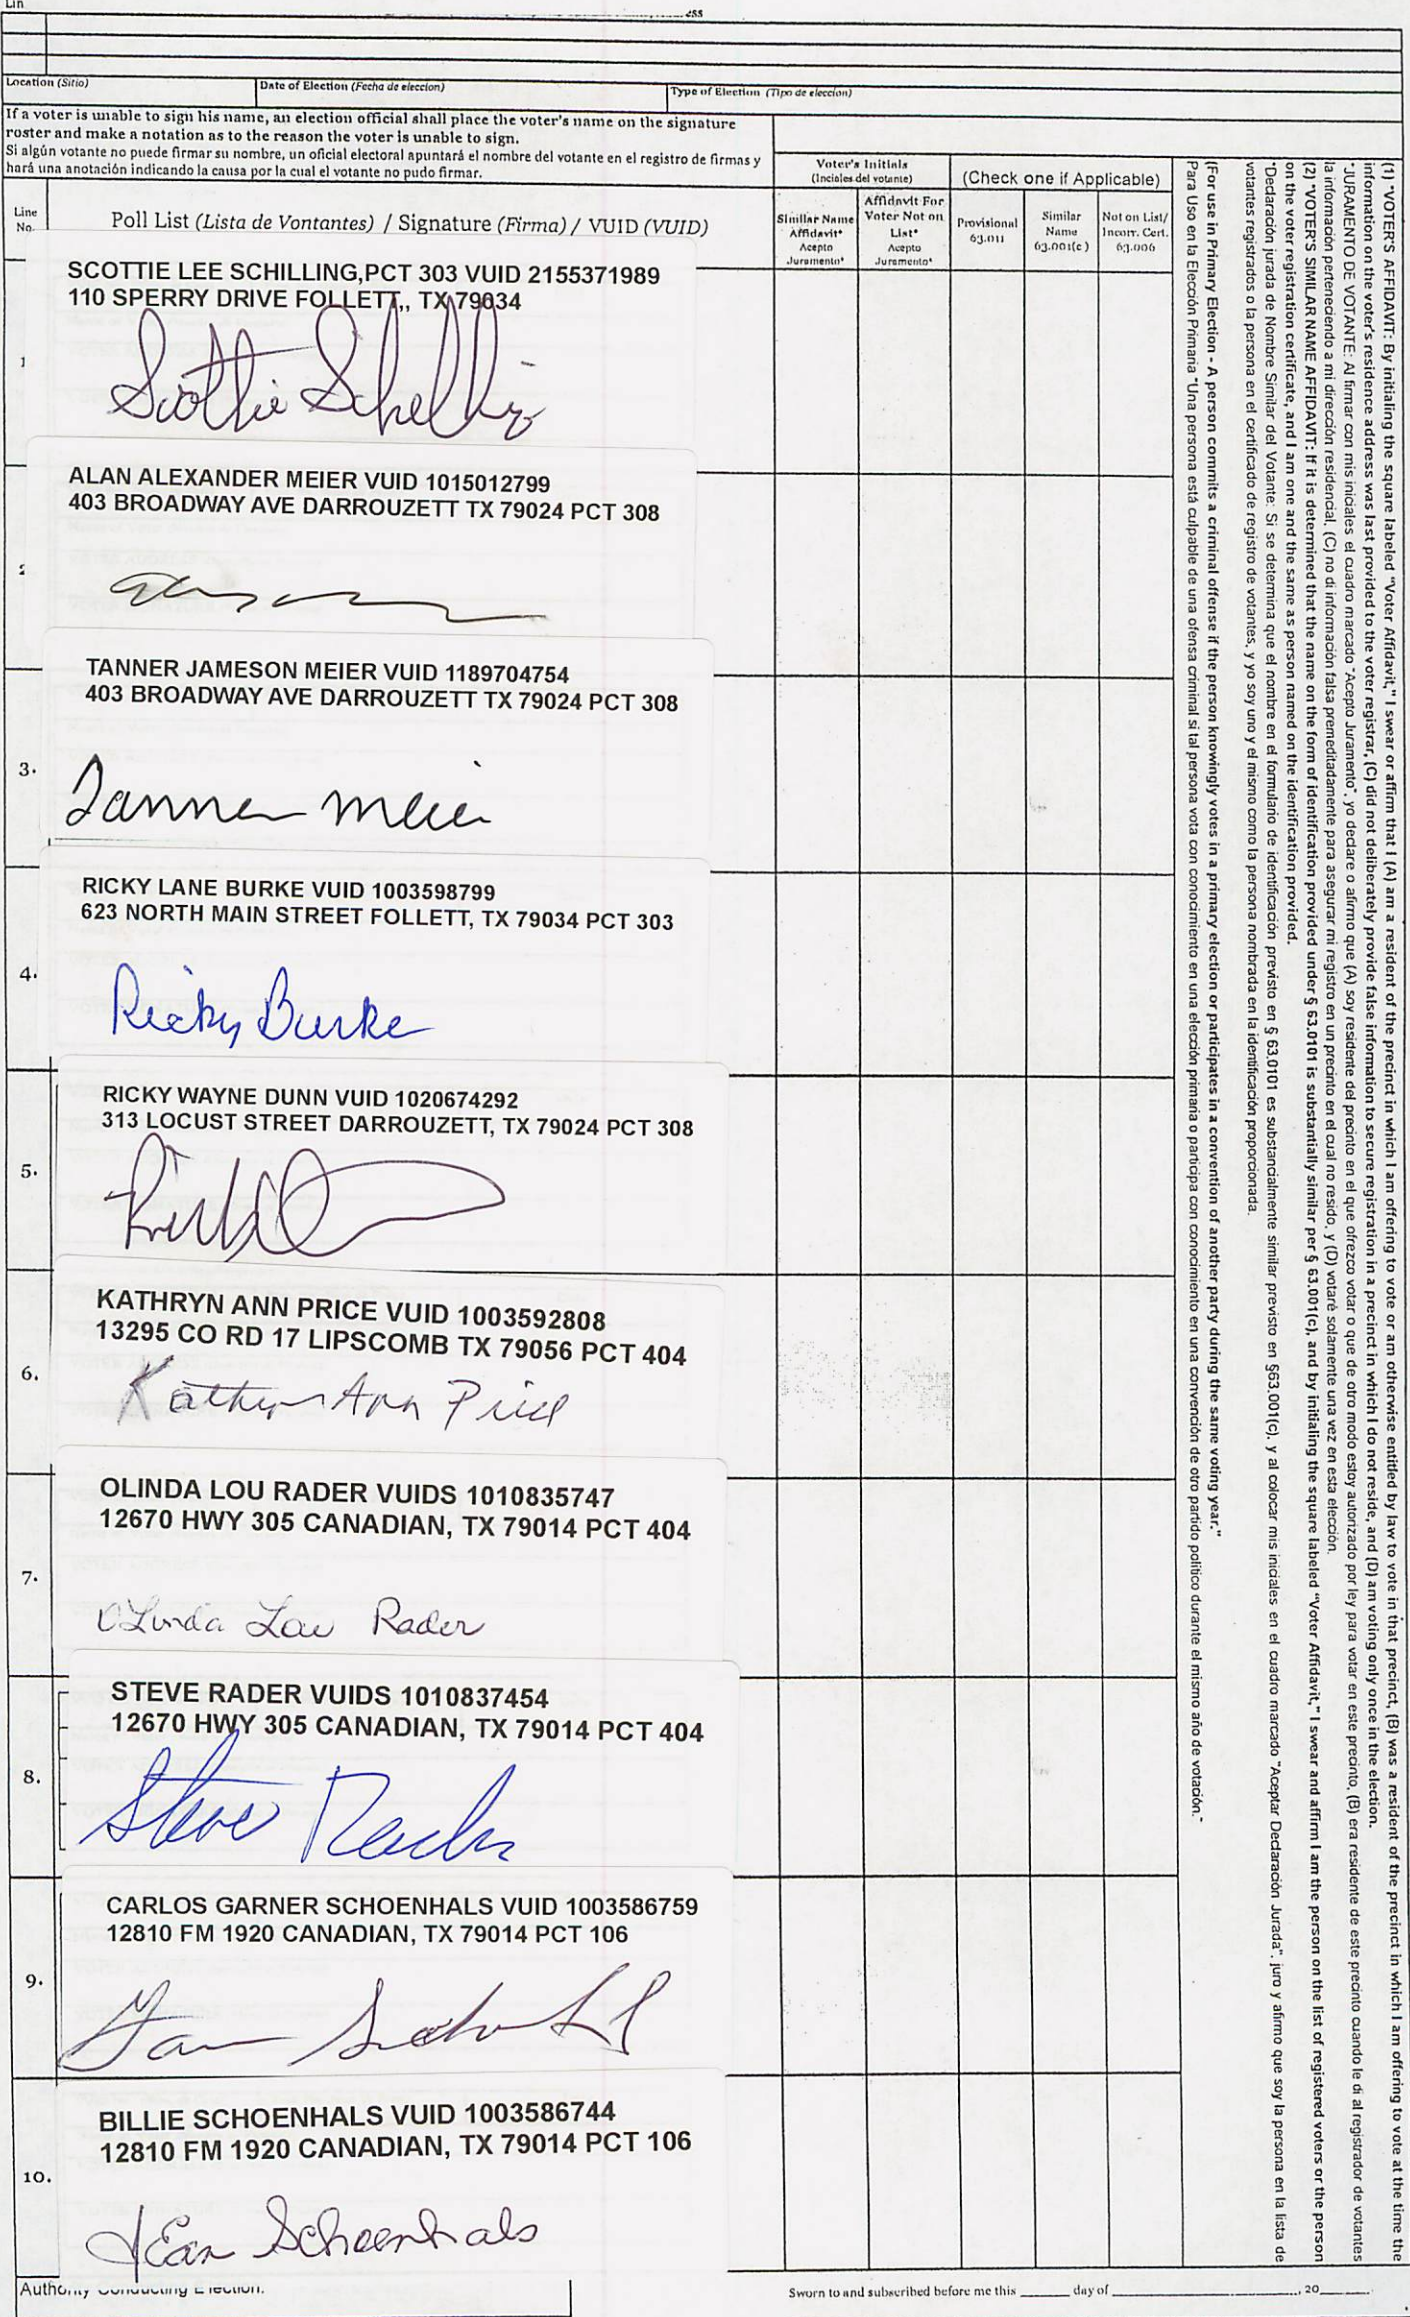 Lin
ess
Location (Sitio)
Date of Election (Fecha de eleccion)
Type of Election (Tipo de eleccion)
If a voter is unable to sign his name, an election official shall place the voter's name on the signature
roster and make a notation as to the reason the voter is unable to sign.
Si algún votante no puede firmar su nombre, un oficial electoral apuntará el nombre del votante en el registro de firmas y
hará una anotación indicando la causa por la cual el votante no pudo firmar.
Voter's Initials
(Inciales del votante)
(Check one if Applicable)
Line
No.
Poll List (Lista de Vontantes) / Signature (Firma) / VUID (VUID)
Similar Name
Affidavit*
Acepto
Juramento*
Affidavit For
Voter Not on
List*
Acepto
Juramento*
Provisional
63.011
Similar
Name
63.001(c)
Not on List/
Incorr. Cert.
63.006
1
SCOTTIE LEE SCHILLING,PCT 303 VUID 2155371989
110 SPERRY DRIVE FOLLETT,, TX 79034
Scottie Schilling
2
ALAN ALEXANDER MEIER VUID 1015012799
403 BROADWAY AVE DARROUZETT TX 79024 PCT 308
3.
TANNER JAMESON MEIER VUID 1189704754
403 BROADWAY AVE DARROUZETT TX 79024 PCT 308
Tanner Meier
4.
RICKY LANE BURKE VUID 1003598799
623 NORTH MAIN STREET FOLLETT, TX 79034 PCT 303
Ricky Burke
5.
RICKY WAYNE DUNN VUID 1020674292
313 LOCUST STREET DARROUZETT, TX 79024 PCT 308
6.
KATHRYN ANN PRICE VUID 1003592808
13295 CO RD 17 LIPSCOMB TX 79056 PCT 404
Kathryn Ann Price
7.
OLINDA LOU RADER VUIDS 1010835747
12670 HWY 305 CANADIAN, TX 79014 PCT 404
OLinda Lou Rader
8.
STEVE RADER VUIDS 1010837454
12670 HWY 305 CANADIAN, TX 79014 PCT 404
Steve Rader
9.
CARLOS GARNER SCHOENHALS VUID 1003586759
12810 FM 1920 CANADIAN, TX 79014 PCT 106
10.
BILLIE SCHOENHALS VUID 1003586744
12810 FM 1920 CANADIAN, TX 79014 PCT 106
JEan Schoenhals
Authority Conducting Election:
Sworn to and subscribed before me this ______ day of ____________________, 20______
(1) "VOTER'S AFFIDAVIT: By initialing the square labeled "Voter Affidavit," I swear or affirm that I (A) am a resident of the precinct in which I am offering to vote or am otherwise entitled by law to vote in that precinct, (B) was a resident of the precinct in which I am offering to vote at the time the
information on the voter's residence address was last provided to the voter registrar, (C) did not deliberately provide false information to secure registration in a precinct in which I do not reside, and (D) am voting only once in the election.
"JURAMENTO DE VOTANTE: Al firmar con mis iniciales el cuadro marcado "Acepto Juramento", yo declare o afirmo que (A) soy residente del precinto en el que ofrezco votar o que de otro modo estoy autorizado por ley para votar en este precinto, (B) era residente de este precinto cuando le di al registrador de votantes
la información perteneciendo a mi dirección residencial, (C) no di información falsa premeditadamente para asegurar mi registro en un precinto en el cual no resido, y (D) votaré solamente una vez en esta elección.
(2) "VOTER'S SIMILAR NAME AFFIDAVIT: If it is determined that the name on the form of identification provided under § 63.0101 is substantially similar per § 63.001(c), and by initialing the square labeled "Voter Affidavit," I swear and affirm I am the person on the list of registered voters or the person
on the voter registration certificate, and I am one and the same as person named on the identification provided.
"Declaración jurada de Nombre Similar del Votante: Si se determina que el nombre en el formulario de identificación previsto en § 63.0101 es substancialmente similar previsto en §63.001(c), y al colocar mis iniciales en el cuadro marcado "Aceptar Declaración Jurada", juro y afirmo que soy la persona en la lista de
votantes registrados o la persona en el certificado de registro de votantes, y yo soy uno y el mismo como la persona nombrada en la identificación proporcionada.
(For use in Primary Election - A person commits a criminal offense if the person knowingly votes in a primary election or participates in a convention of another party during the same voting year."
Para Uso en la Elección Primaria "Una persona está culpable de una ofensa criminal si tal persona vota con conocimiento en una elección primaria o participa con conocimiento en una convención de otro partido político durante el mismo año de votación."